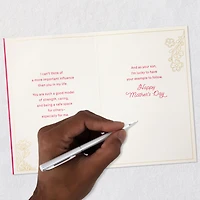 I can't think of
a more important influence
than you in my life.
You are such a good model
of strength, caring,
and being a safe space
for others—
especially for me.
And as your son,
I'm lucky to have
your example to follow.
Happy
Mother's Day